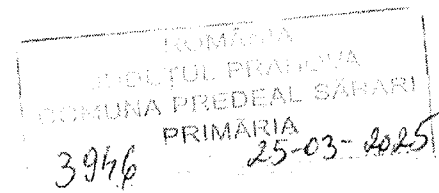 ROMÂNIA
JUDEŢUL PRAHOVA
COMUNA PREDEAL SĂRARI
PRIMĂRIA
3946 25-03-2025